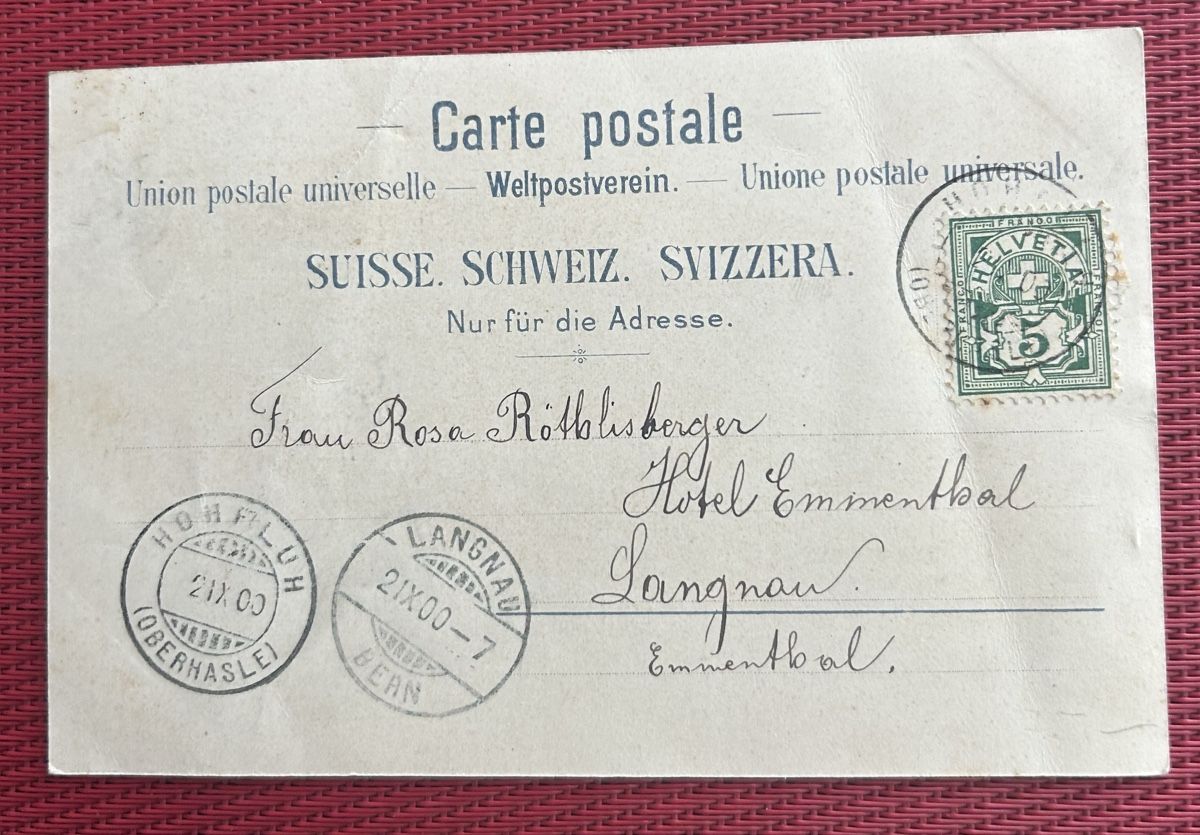 Carte postale
Union postale universelle — Weltpostverein. — Unione postale universale.
SUISSE. SCHWEIZ. SVIZZERA.
Nur für die Adresse.
FRANCO
HELVETIA
FRANCO
FRANCO
5
Frau Rosa Röthlisberger
Hotel Emmenthal
Langnau.
Emmenthal.
HOHFLUH
21 IX 00
(OBERHASLE)
LANGNAU
21 IX 00 – 7
BERN